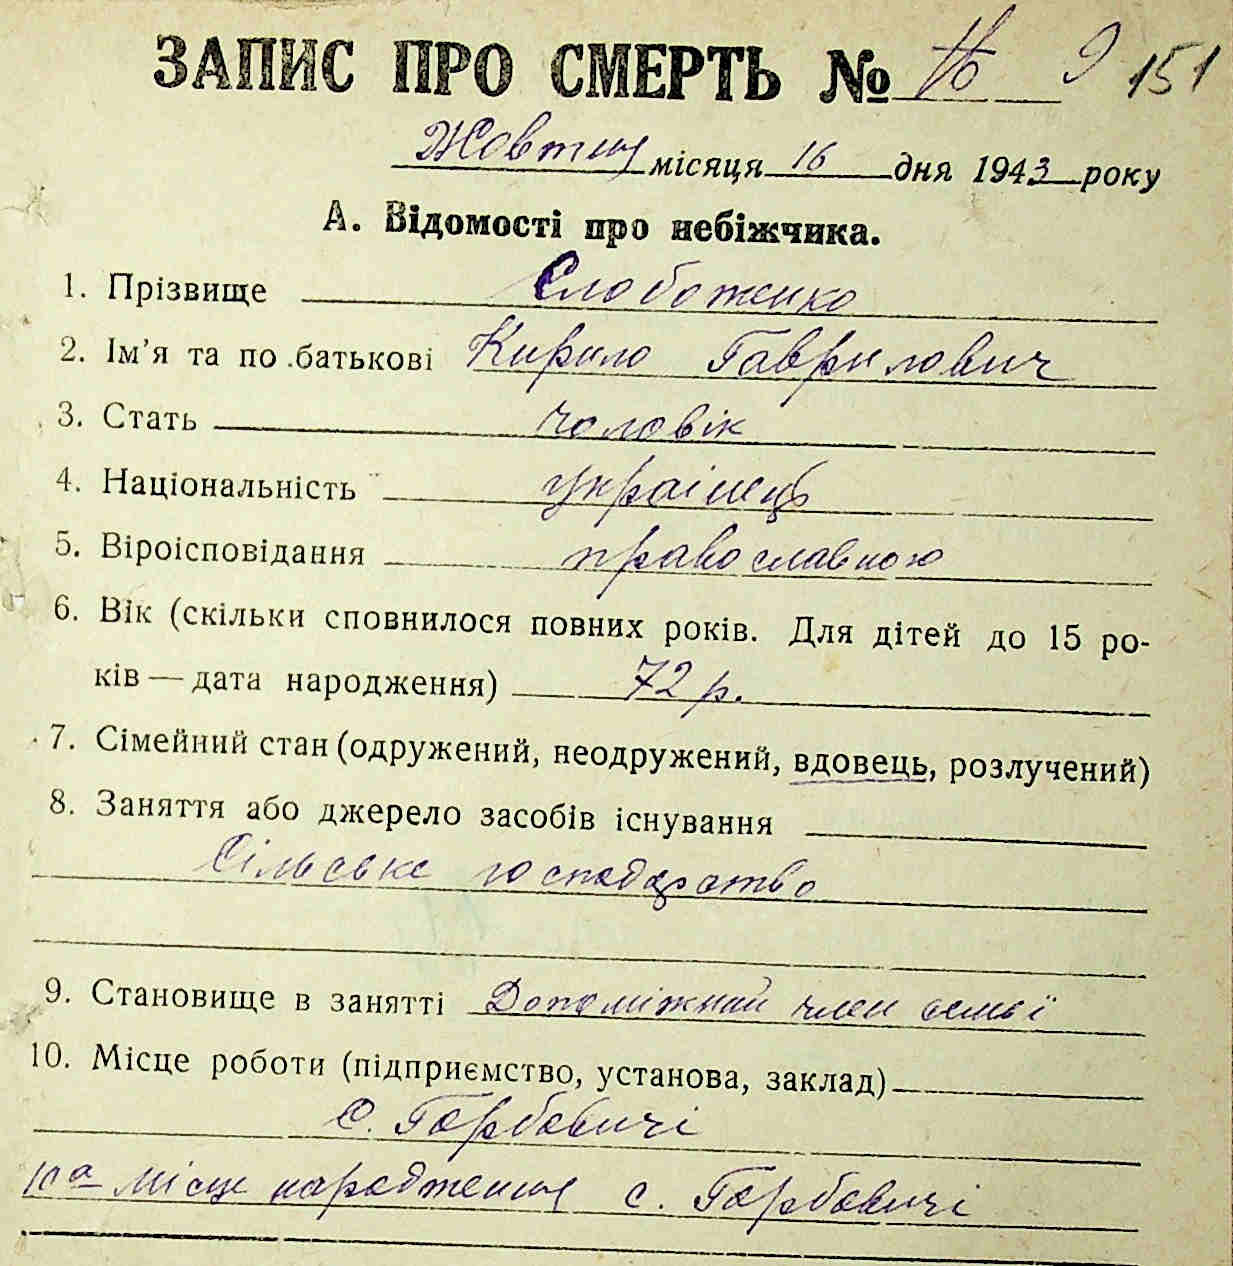 ЗАПИС ПРО СМЕРТЬ № 16 9 151
Жовтня місяця 16 дня 1943 року
А. Відомості про небіжчика.
1. Прізвище Слобоженко
2. Ім’я та по батькові Кирило Гаврилович
3. Стать чоловік
4. Національність украінець
5. Віроісповідання православною
6. Вік (скільки сповнилося повних років. Для дітей до 15 ро-
ків — дата народження) 72 р.
7. Сімейний стан (одружений, неодружений, вдовець, розлучений)
8. Заняття або джерело засобів існування
Сільське господарство
9. Становище в занятті Допоміжний член семьї
10. Місце роботи (підприємство, установа, заклад)
с. Горбовичі
10а місце народження с. Горбовичі